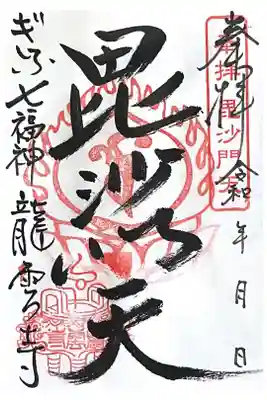 奉拝 令和 年 月 日
奉拝 毘沙門
毘沙门天
ぎふ七福神 龍雲寺